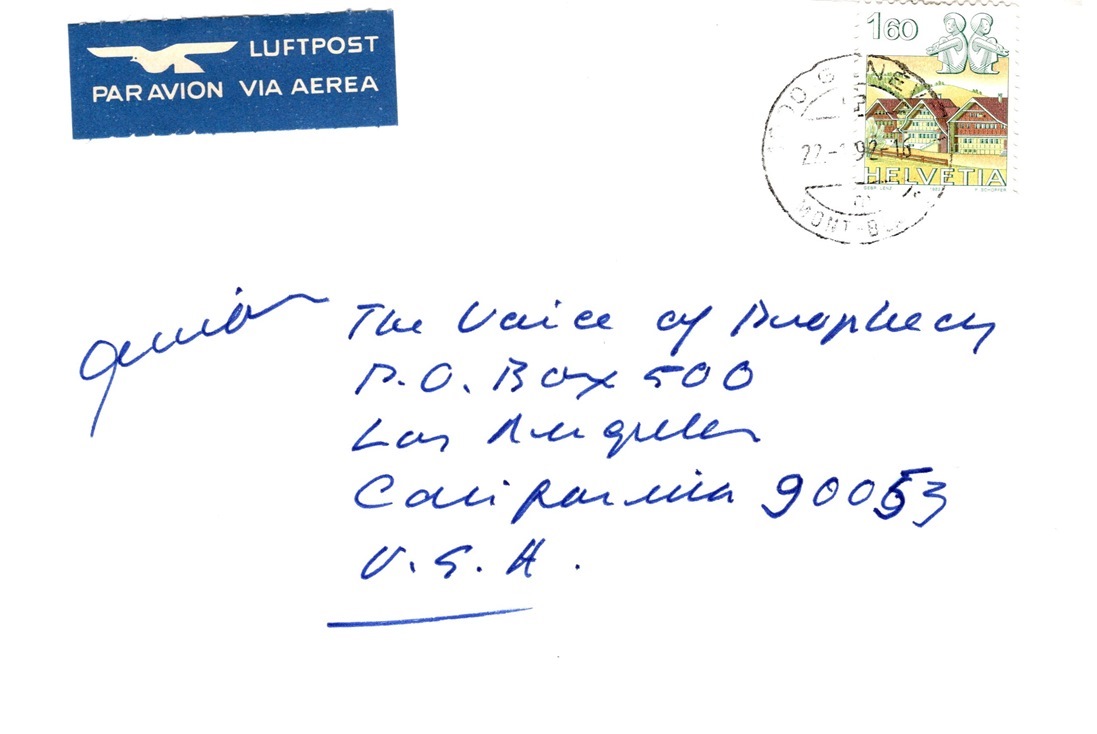 LUFTPOST
PAR AVION VIA AEREA
160
HELVETIA
22- 92-
MONT-B
avion
The Voice of Prophecy
P.O. Box 500
Los Angeles
California 90053
U.S.A.